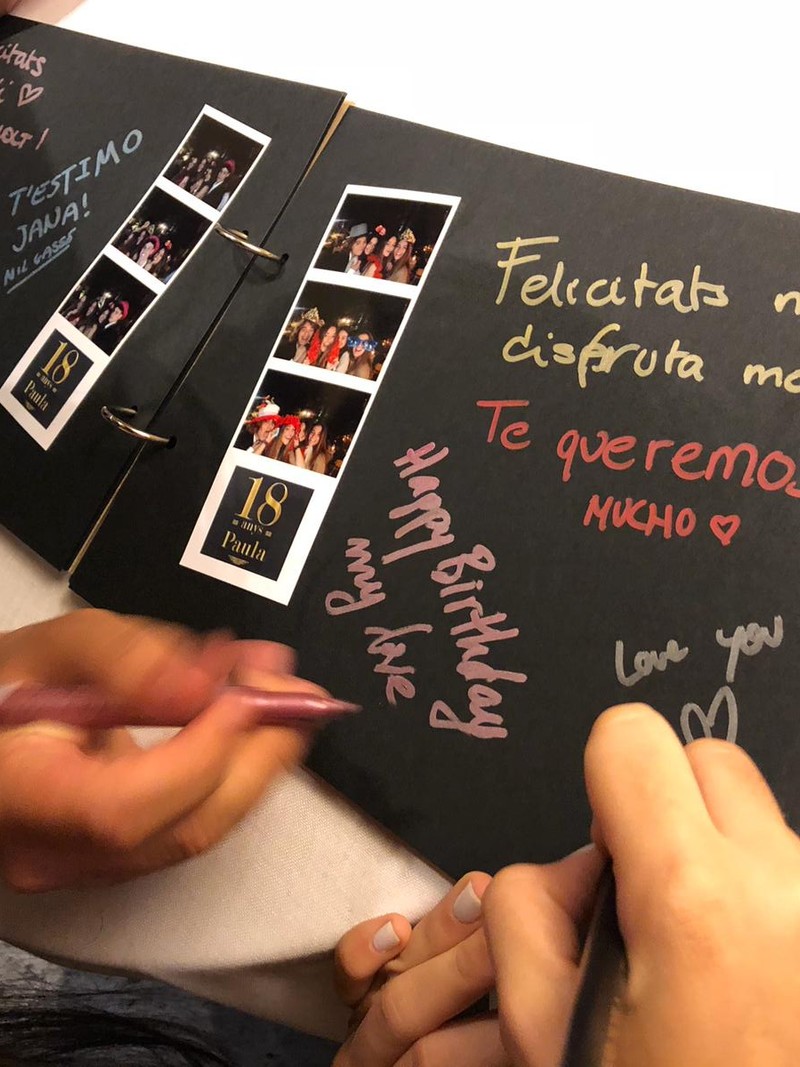 T'ESTIMO
JANA!
NIL GASSÓ
18
anys
Paula
18
anys
Paula
Felicitats
disfruta
Te queremos
MUCHO ♡
Happy Birthday
my love
Love you
♡